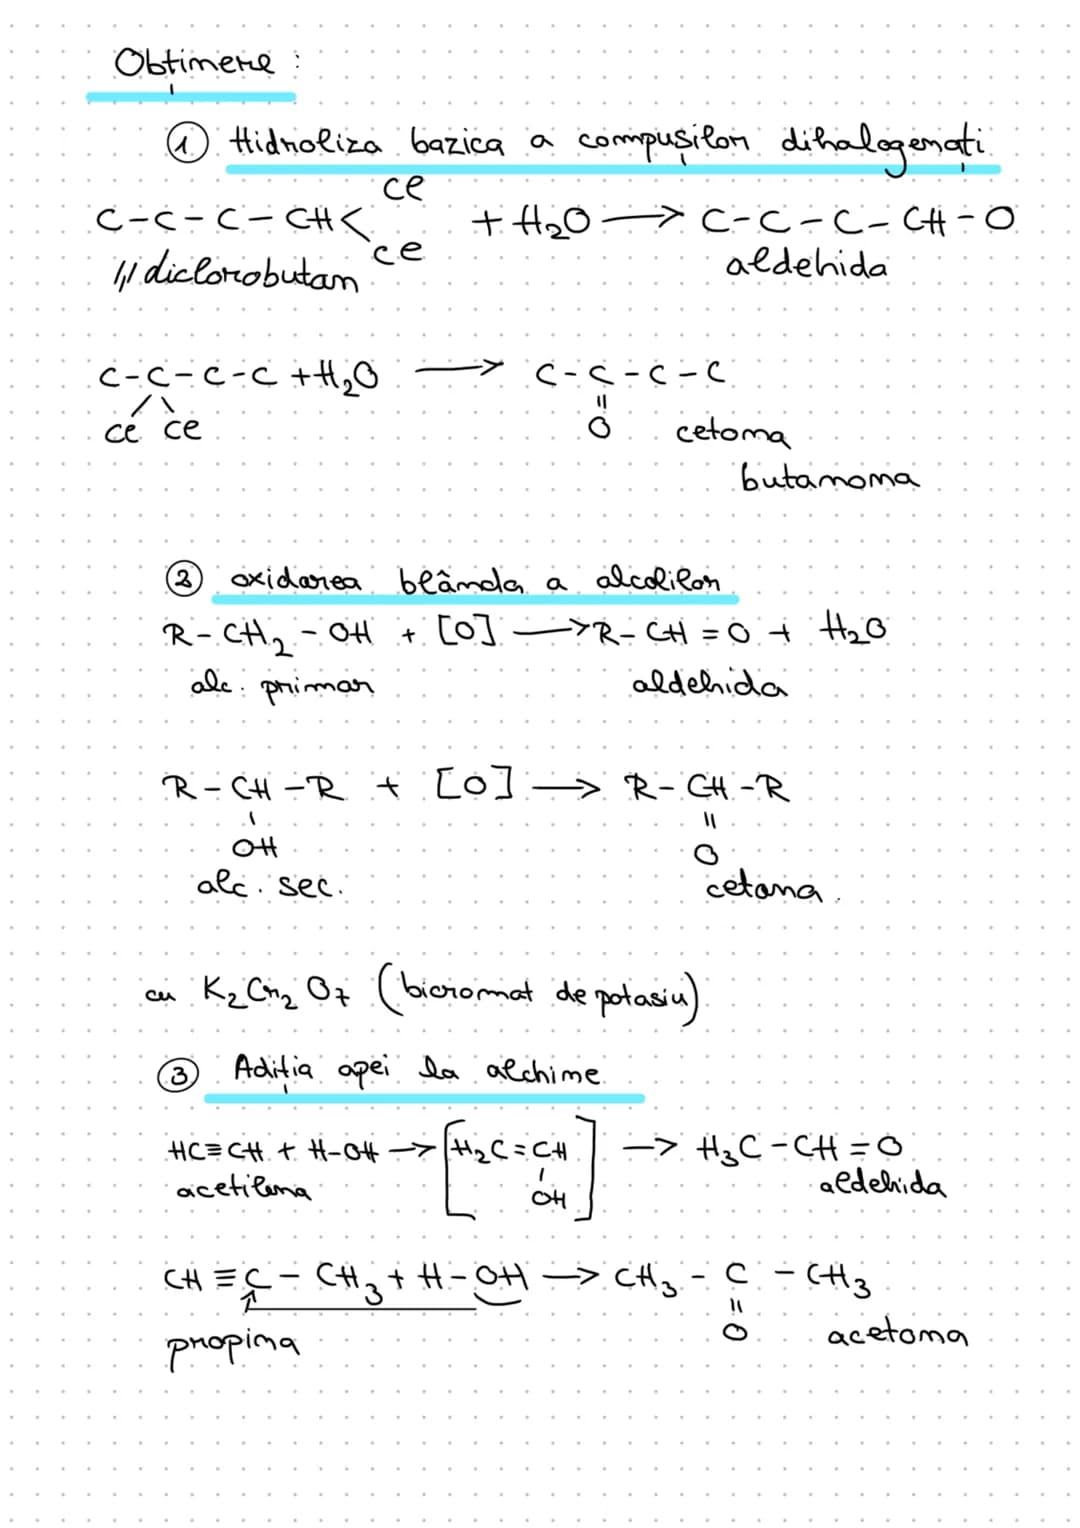 Obținere :
① Hidroliza bazica a compușilor dihalogenați
Cl
C-C-C-CH< + H₂O → C-C-C-CH-O
Cl
1,1 diclorobutan aldehida
C-C-C-C + H₂O → C-C-C-C
/ \ ||
Cl Cl O cetona
butanona
② oxidarea blânda a alcolilor
R-CH₂-OH + [O] → R-CH=O + H₂O
alc. primar aldehida
R-CH-R + [O] → R-CH-R
| ||
OH O
alc. sec. cetona
cu K₂Cr₂O₇ (bicromat de potasiu)
③ Adiția apei la alchine
HC≡CH + H-OH → [H₂C=CH] → H₃C-CH=O
|
acetilena OH aldehida
CH≡C-CH₃ + H-OH → CH₃-C-CH₃
||
propina O acetona